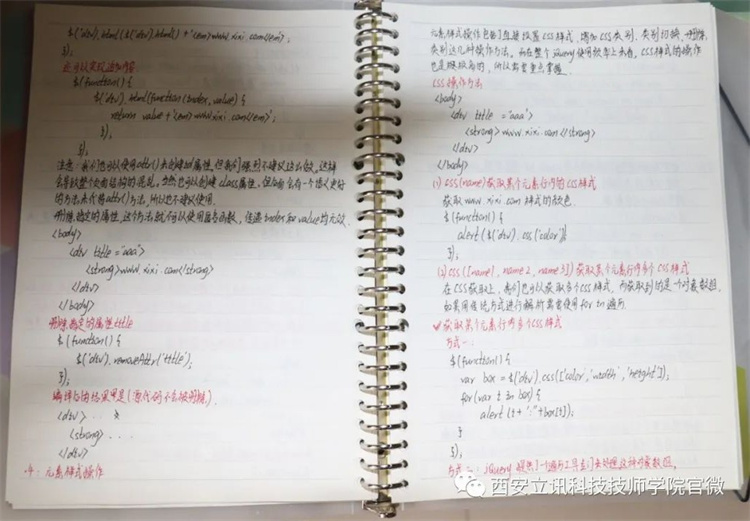 $('div').html($('div').html() + '<em>www.xixi.com</em>');
});
也可以实现追加内容.
$(function() {
$('div').html(function(index, value) {
return value + '<em>www.xixi.com</em>';
});
});
注意: 我们也可以使用attr()来创建id属性, 但我们强烈不建议这么做. 这样
会导致整个页面结构的混乱. 当然也可以创建class属性, 但后面会有一个语义更好
的方法来代替attr()方法, 所以也不建议使用.
删除指定的属性, 这个方法就不可以使用匿名函数, 传递index和value均无效.
<body>
<div title="aaa">
<strong>www.xixi.com</strong>
</div>
</body>
删除指定的属性title
$(function() {
$('div').removeAttr('title');
});
编译后的结果是(源代码不会被删除).
<div> . .
<strong> . . .
</div>
四: 元素样式操作
元素样式操作包括了直接设置CSS样式、增加CSS类别、类别切换、删除
类别这几种操作方法. 而在整个jQuery使用频率上来看, CSS样式的操作
也是极高的, 所以需要重点掌握.
CSS操作方法
<body>
<div title="aaa">
<strong>www.xixi.com</strong>
</div>
</body>
(1) css(name)获取某个元素行内的CSS样式
获取www.xixi.com样式的颜色
$(function() {
alert($('div').css('color'))
});
(2) css([name1, name2, name3])获取某个元素行内多个CSS样式
在CSS获取上, 我们也可以获取多个CSS样式, 而获取到的是一个对象数组,
如果用传统方式进行解析需要使用for in遍历.
获取某个元素行内多个CSS样式
方式一:
$(function() {
var box = $('div').css(['color', 'width', 'height']);
for(var i in box) {
alert(i + ':' + box[i]);
}
});
方式二: jQuery提供了一个遍历工具专门来处理这种对象数组.
西安立讯科技技师学院官微